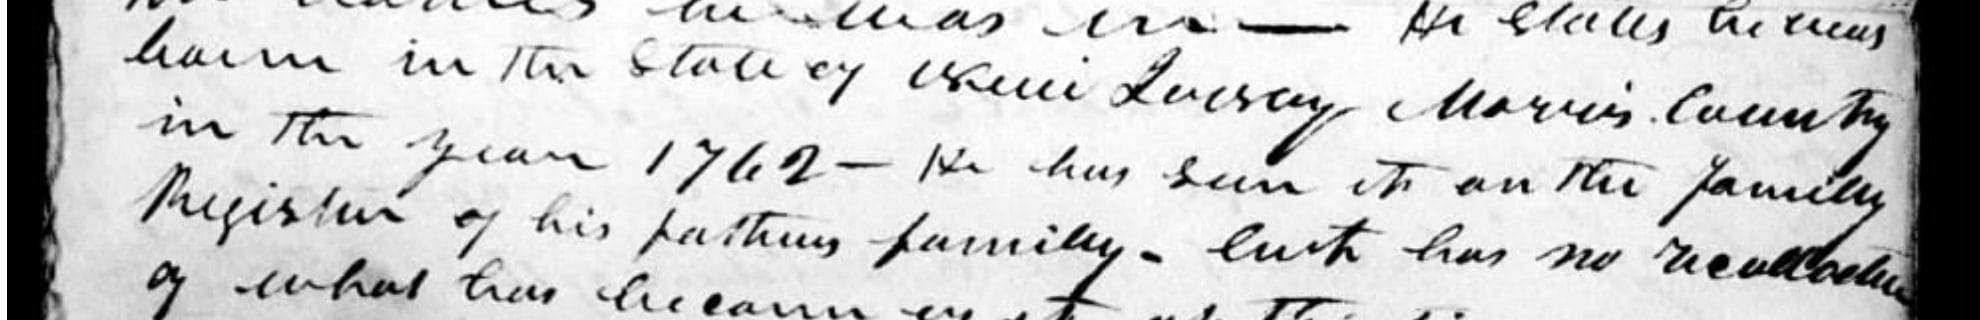 he was in — He States he was
born in the State of New Jersey Morris County
in the year 1762 — He has seen it on the family
Register of his fathers family - but has no recollection
of what has became